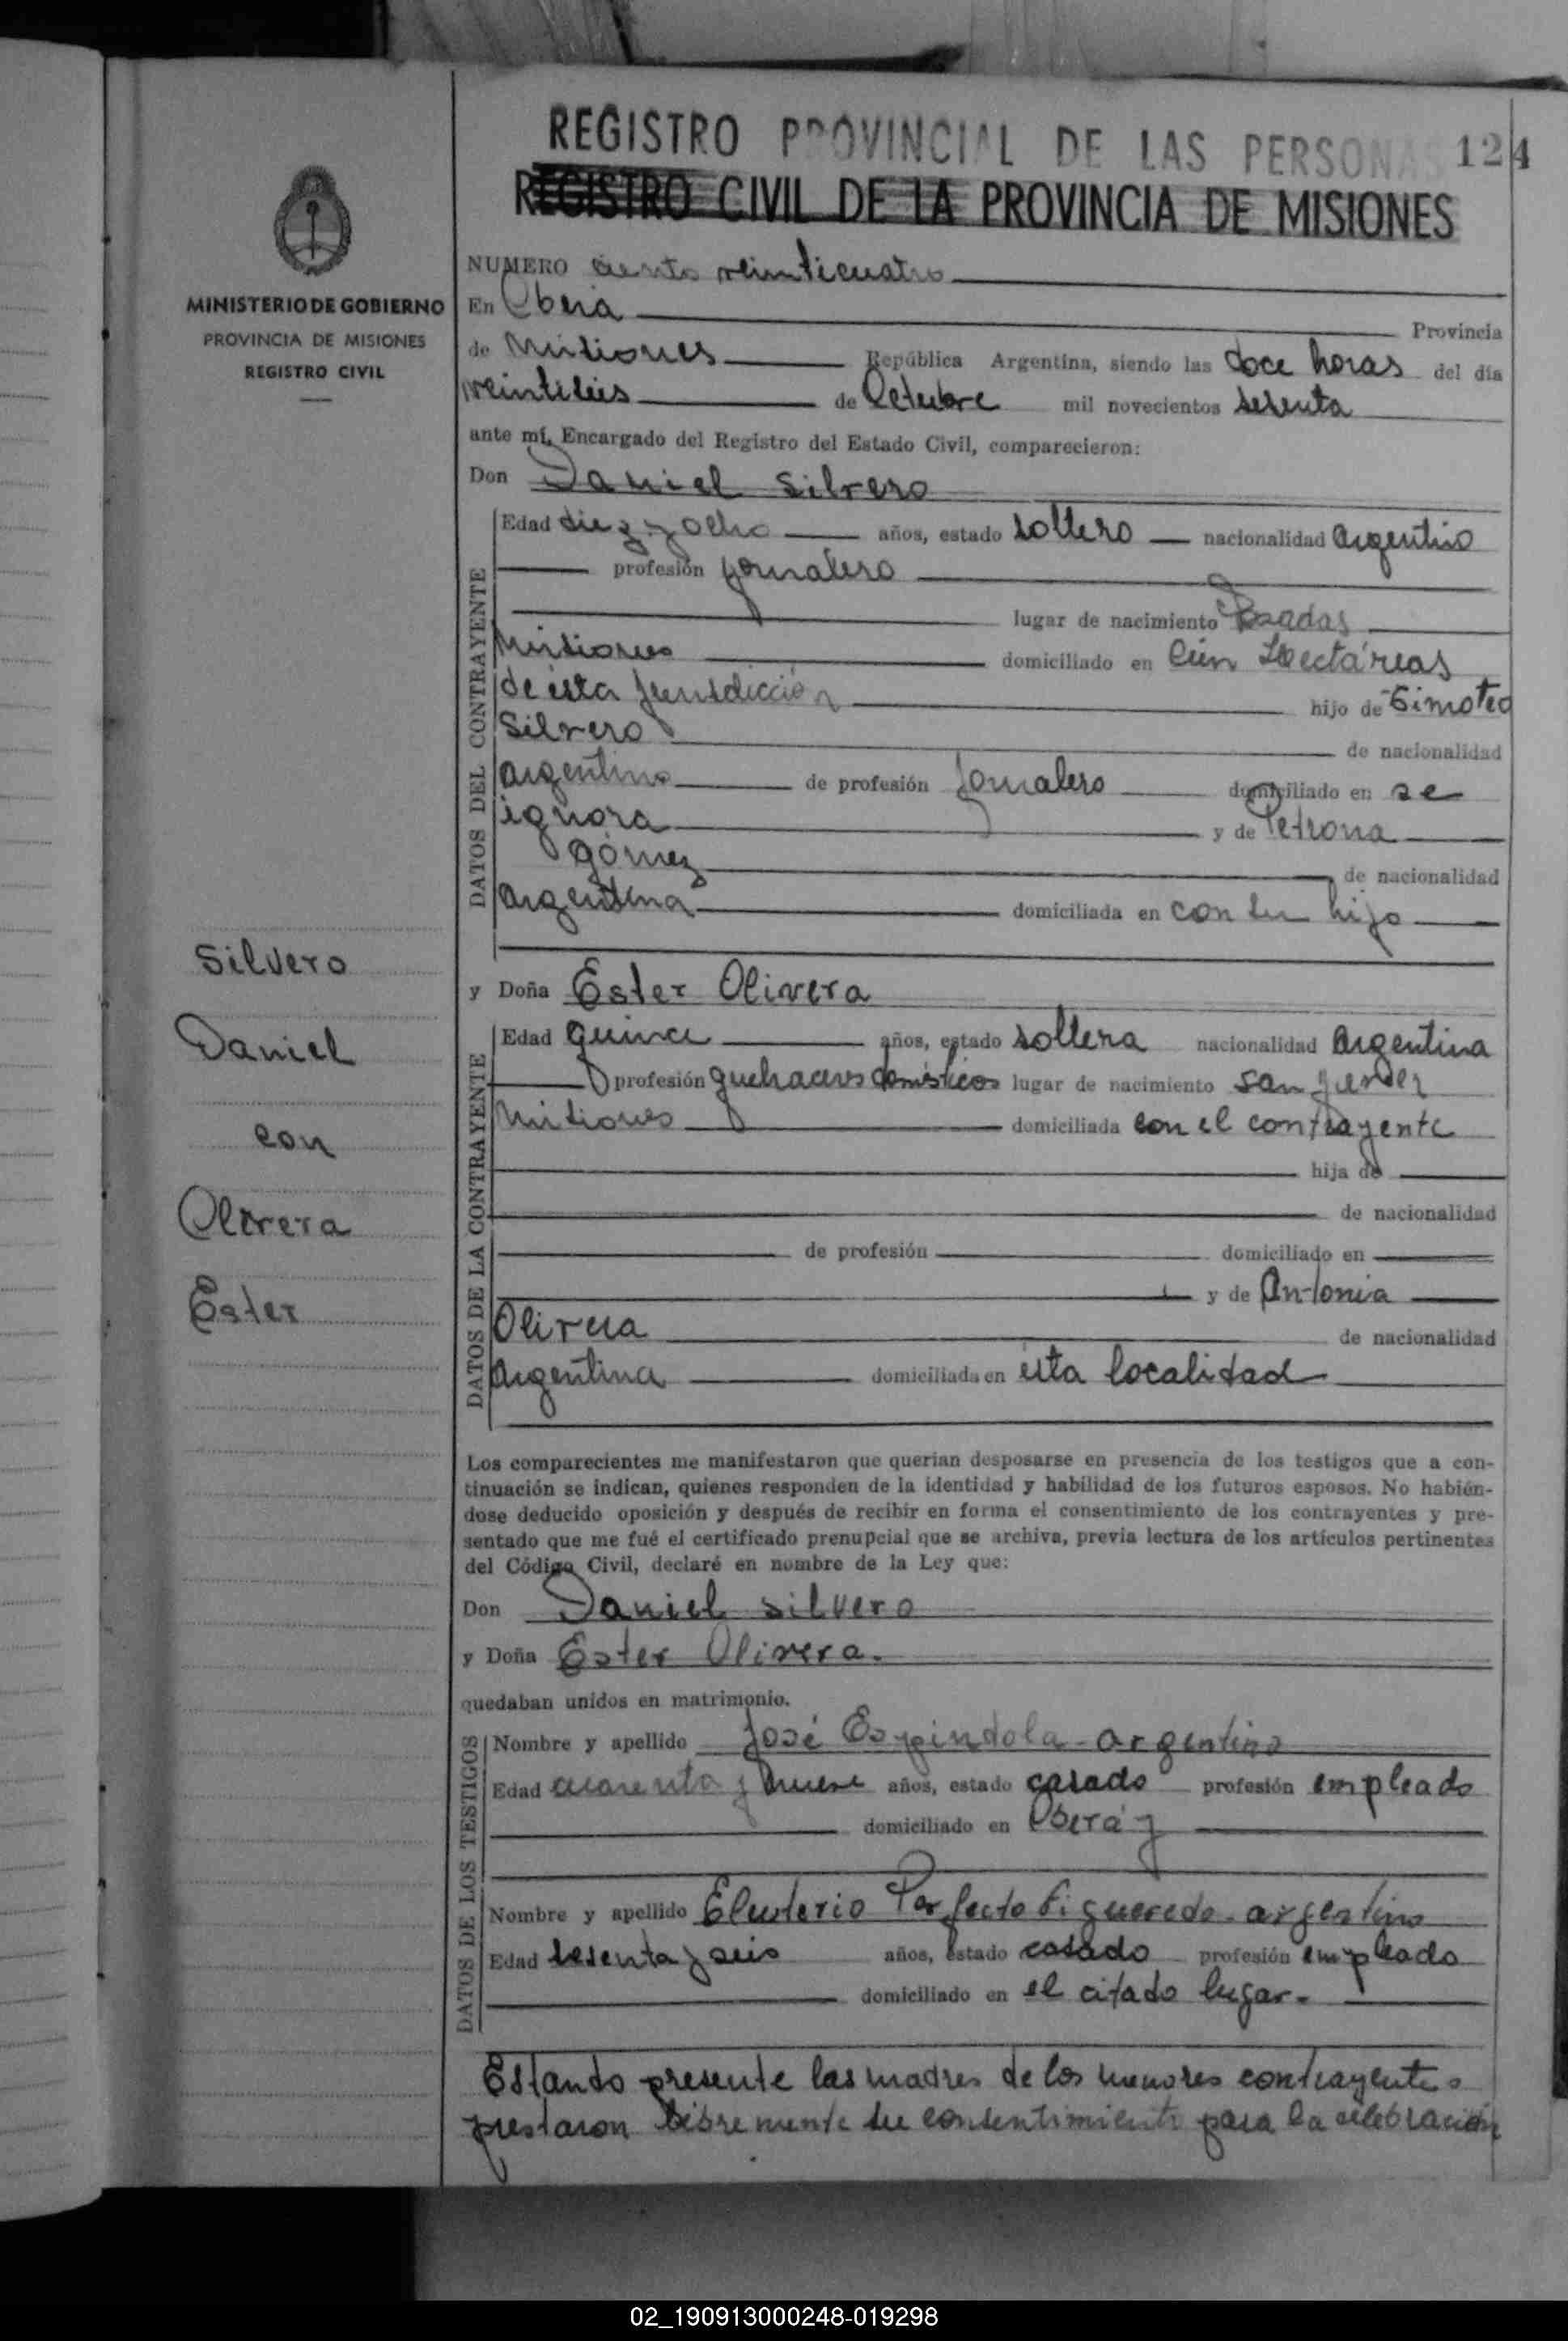 REGISTRO PROVINCIAL DE LAS PERSONAS 124
REGISTRO CIVIL DE LA PROVINCIA DE MISIONES
MINISTERIO DE GOBIERNO
PROVINCIA DE MISIONES
REGISTRO CIVIL
Silvero
Daniel
con
Olivera
Ester
NUMERO ciento veinticuatro
En Oberá Provincia
de Misiones República Argentina, siendo las doce horas del día
veintiseis de Octubre mil novecientos sesenta
ante mí, Encargado del Registro del Estado Civil, comparecieron:
Don Daniel Silvero
DATOS DEL CONTRAYENTE
Edad diez y ocho años, estado soltero nacionalidad argentino
profesión jornalero
lugar de nacimiento Posadas
Misiones domiciliado en Cien Hectáreas
de esta jurisdicción hijo de Timoteo
Silvero de nacionalidad
argentino de profesión jornalero domiciliado en se
ignora y de Petrona
Gómez de nacionalidad
argentina domiciliada en con su hijo
y Doña Ester Olivera
DATOS DE LA CONTRAYENTE
Edad quince años, estado soltera nacionalidad argentina
profesión quehaceres domésticos lugar de nacimiento San Javier
Misiones domiciliada con el contrayente
hija de
de nacionalidad
de profesión domiciliado en
y de Antonia
Olivera de nacionalidad
argentina domiciliada en esta localidad
Los comparecientes me manifestaron que querían desposarse en presencia de los testigos que a con-
tinuación se indican, quienes responden de la identidad y habilidad de los futuros esposos. No habién-
dose deducido oposición y después de recibir en forma el consentimiento de los contrayentes y pre-
sentado que me fué el certificado prenupcial que se archiva, previa lectura de los artículos pertinentes
del Código Civil, declaré en nombre de la Ley que:
Don Daniel Silvero
y Doña Ester Olivera.
quedaban unidos en matrimonio.
DATOS DE LOS TESTIGOS
Nombre y apellido José Espindola - argentino
Edad cuarenta y nueve años, estado casado profesión empleado
domiciliado en Oberá y
Nombre y apellido Eleuterio Perfecto Figueredo - argentino
Edad sesenta y seis años, estado casado profesión empleado
domiciliado en el citado lugar.
Estando presente las madres de los menores contrayentes
prestaron libremente su consentimiento para la celebración
02_190913000248-019298